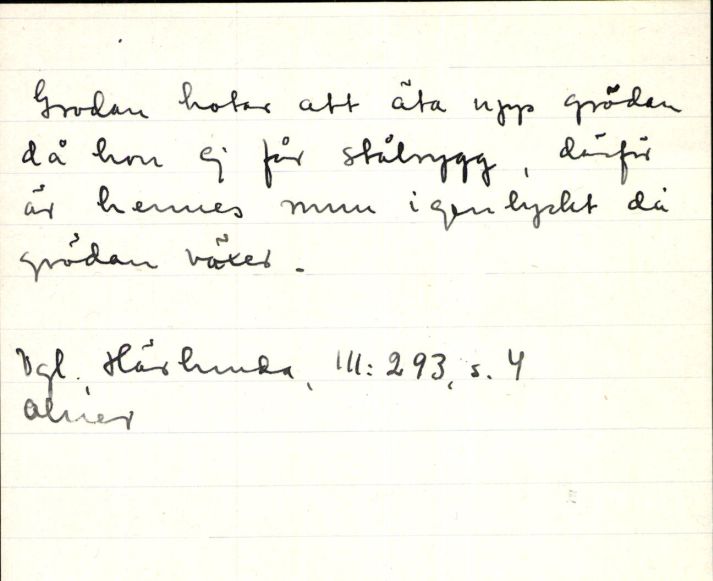 Grodan hotar att äta upp grödan
då hon ej får stålrygg, därför
är hennes mun igenlyckt då
grödan växer.
Vgl., III: 293, s. 4